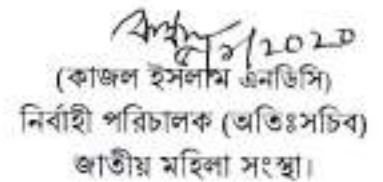 ৫/১/2020
(কাজল ইসলাম এনডিসি)
নির্বাহী পরিচালক (অতিঃসচিব)
জাতীয় মহিলা সংস্থা।